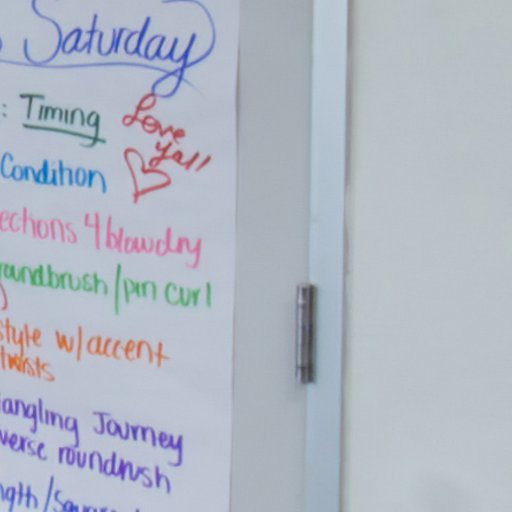 Saturday
: Timing
Love
Yall
Condition
ections 4 blowdry
oundbrush/pin curl
style w/accent
twists
angling Journey
verse roundrush
ngth/